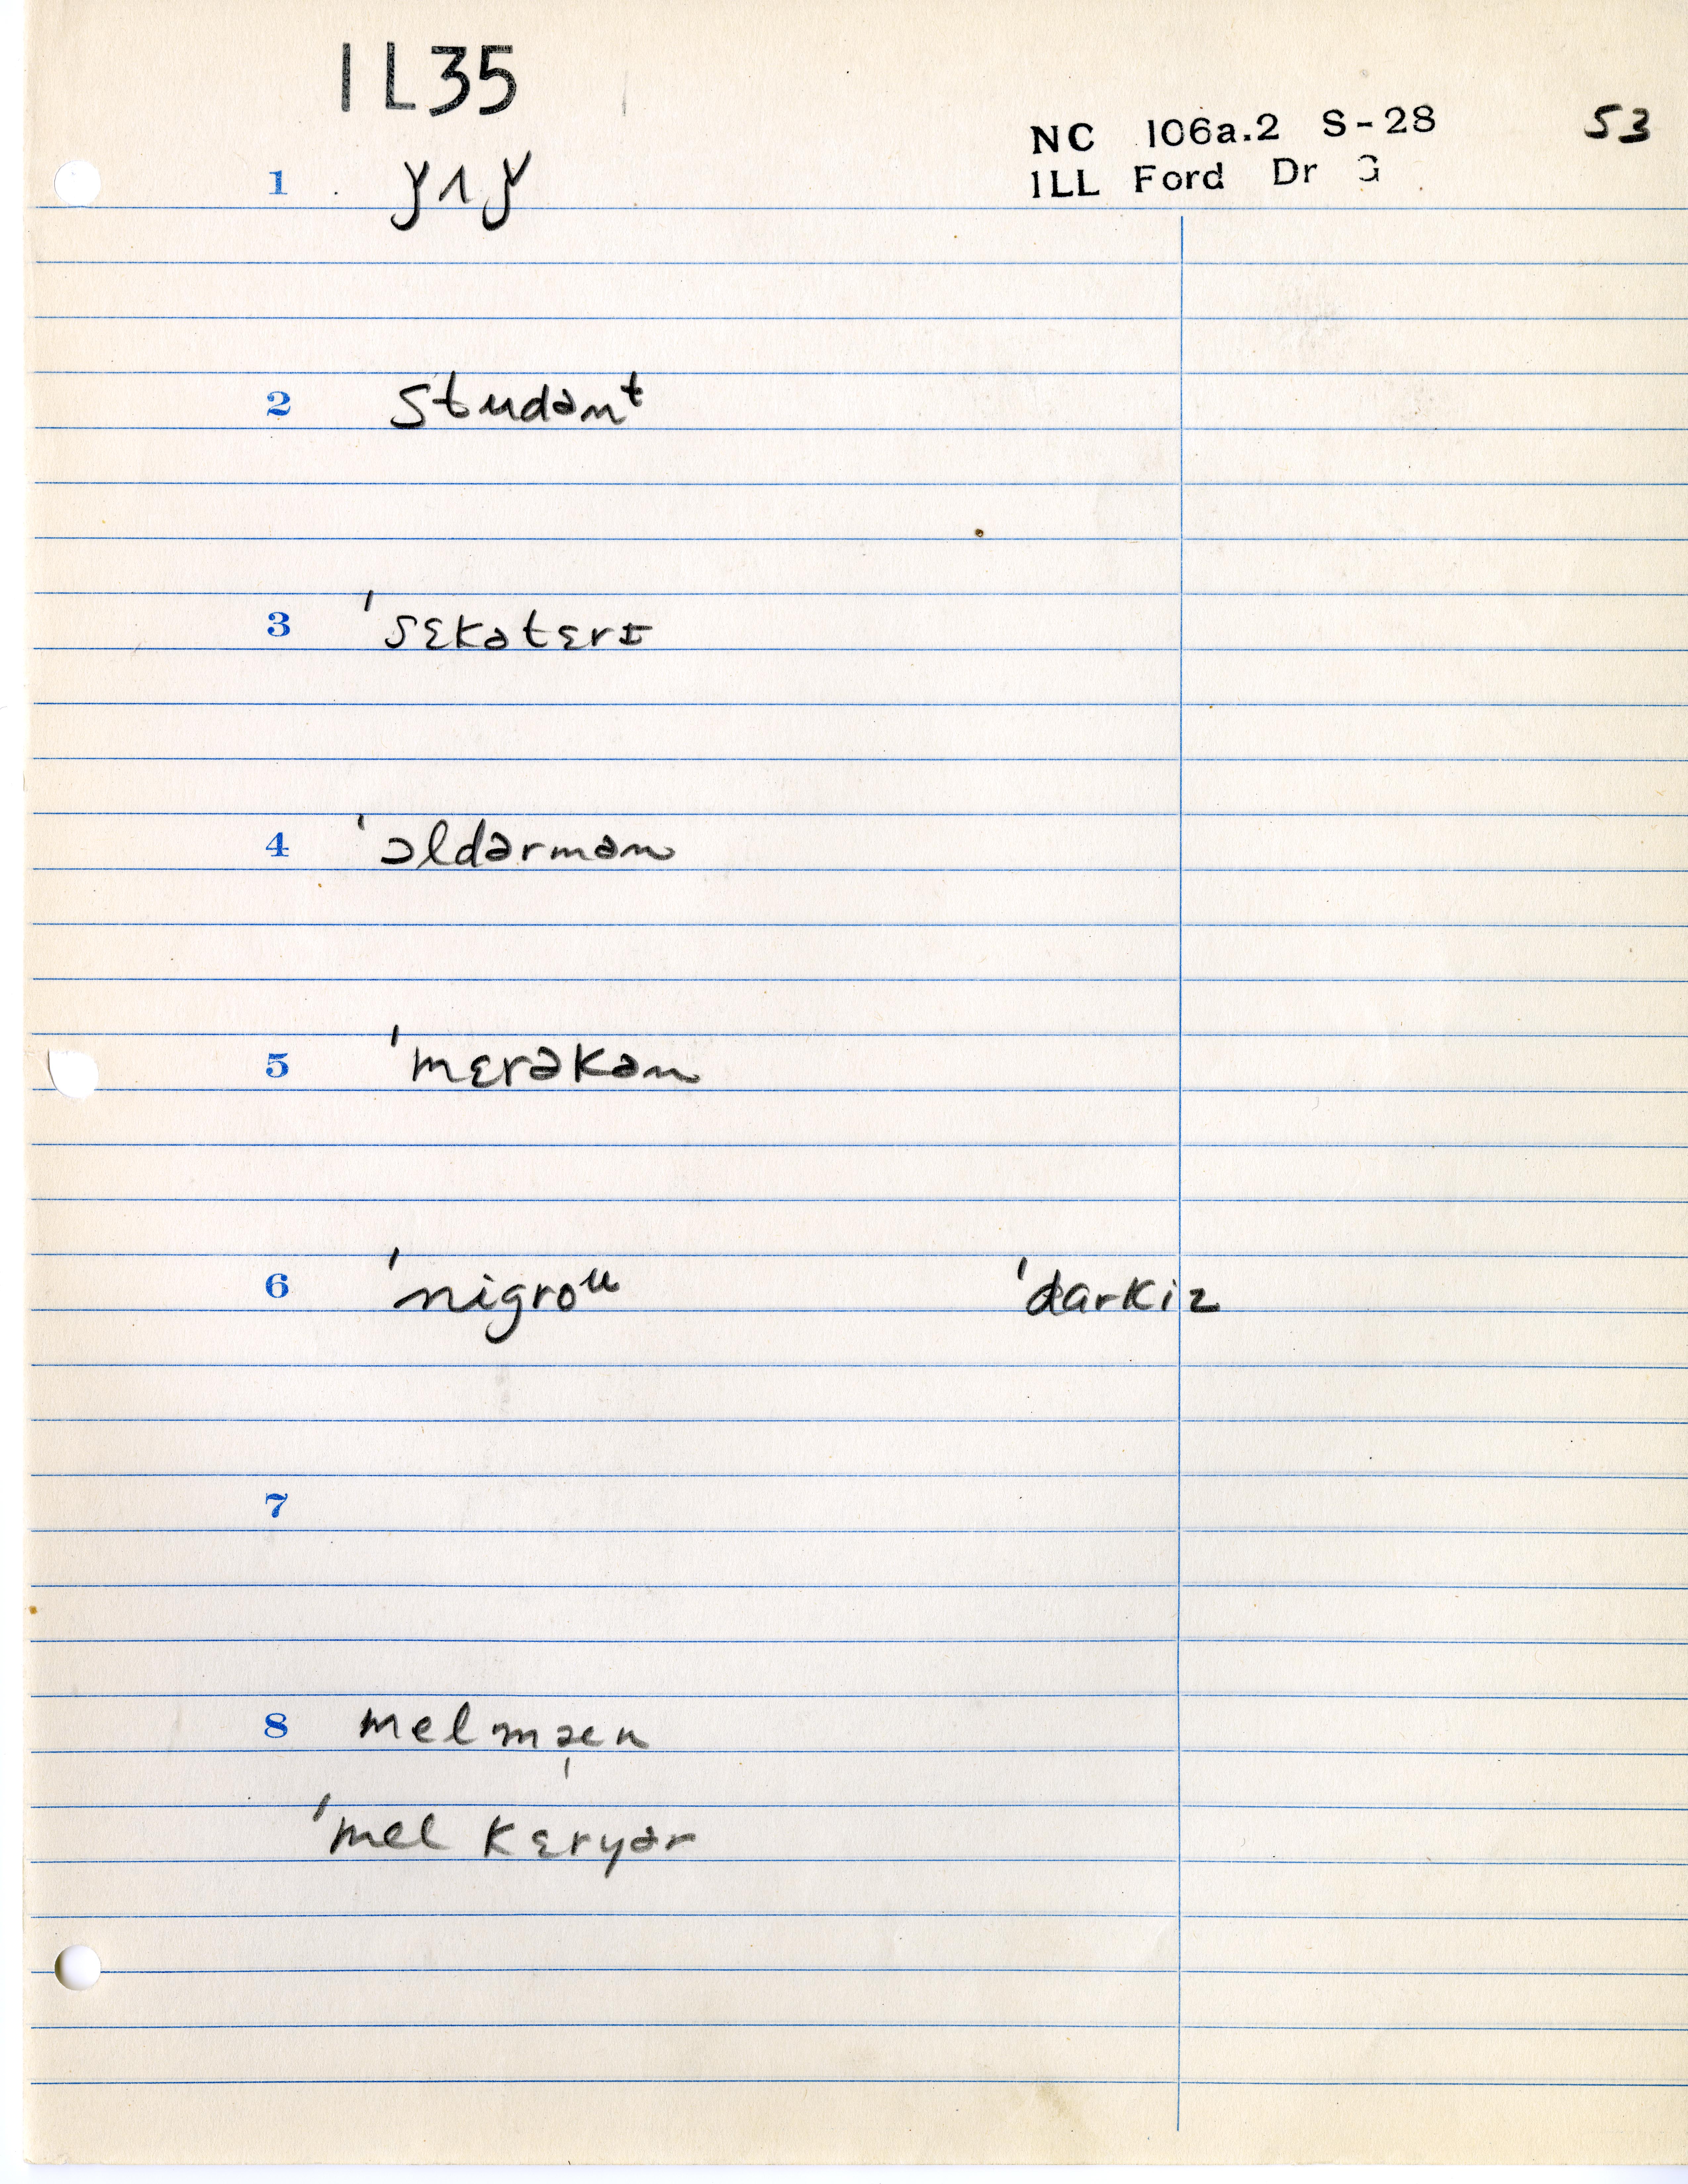 IL35
NC 106a.2 S-28 53
ILL Ford Dr G
1 ǰʌǰ
2 studənᵗ
3 ˈsɛkətɛrɪ
4 ˈɔldərmən
5 ˈmɛrəkən
6 ˈnigroᵘ ˈdarkiz
7
8 melmˌæn
ˈmel kɛryər